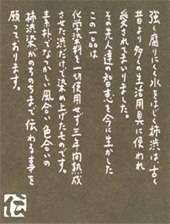 強く腐りにくく水をはじく柿渋は、古く
昔より多くの生活用具に使われ
愛されてまいりました。
その先人達の知恵を今に生かした
この一品は
化学染料を一切使用せず三年間熟成
させた渋だけで染め上げたものです。
素朴でなつかしい風合い色合いの
柿渋染がのちのちまで伝わる事を
願っております。
伝